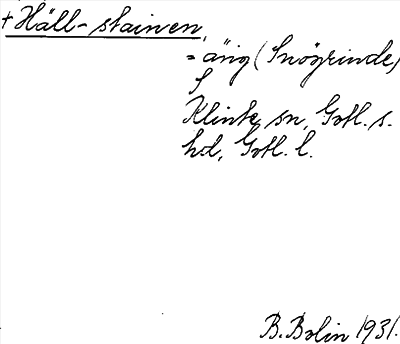 + Häll-stainen,
= äng (Snögrinde,
S
Klinte sn, Gotl. s.
hd, Gotl. l.
B. Bolin 1931.